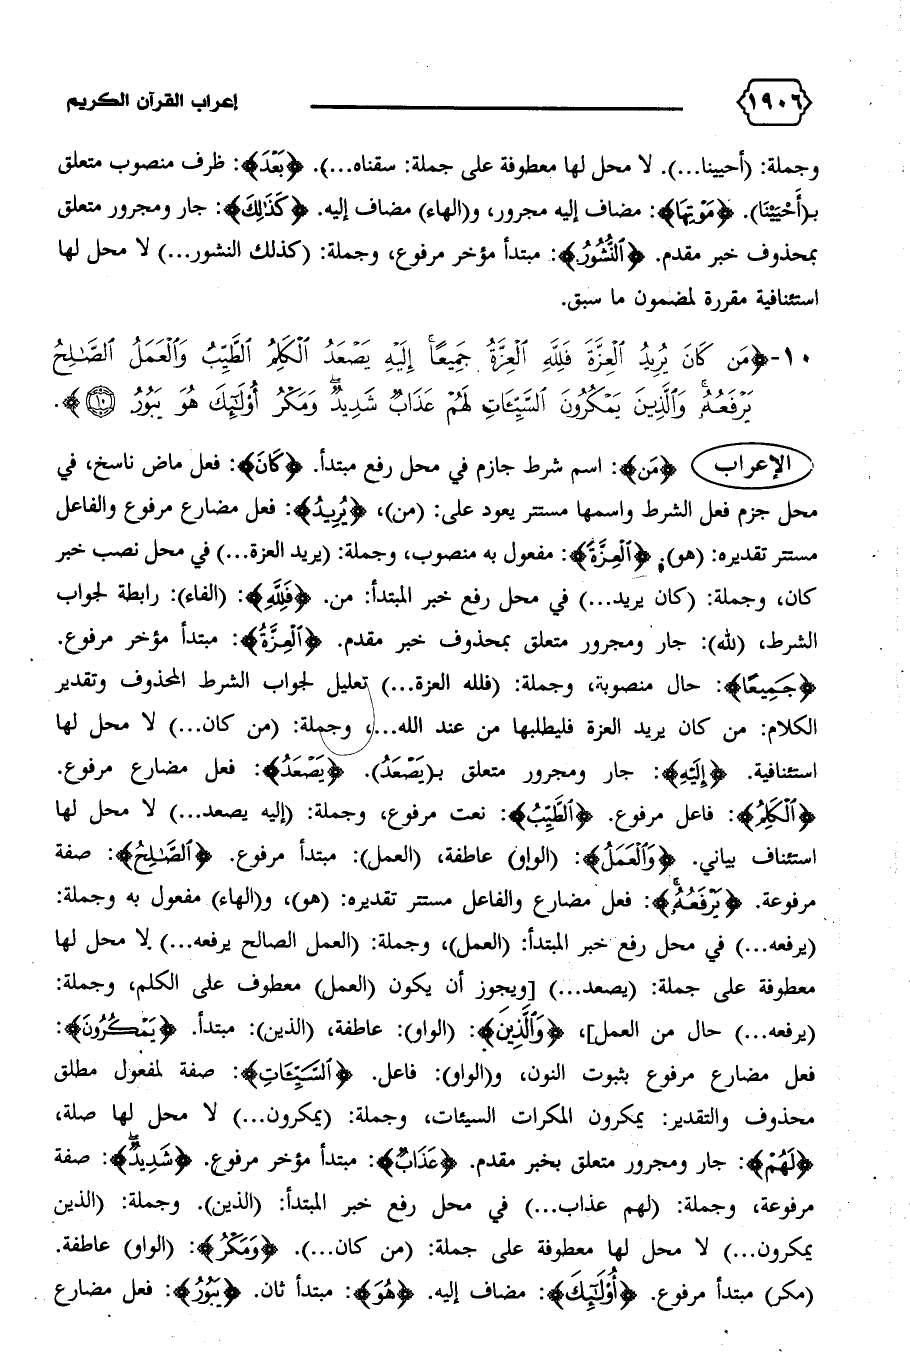 ١٩٠٦ إعراب القرآن الكريم
وجملة: (أحيينا...). لا محل لها معطوفة على جملة: سقناه...). ﴿بَعْدَ﴾: ظرف منصوب متعلق
بـ(أَحْيَيْنَا). ﴿مَوْتِهَا﴾: مضاف إليه مجرور، و(الهاء) مضاف إليه. ﴿كَذَٰلِكَ﴾: جار ومجرور متعلق
بمحذوف خبر مقدم. ﴿ٱلنُّشُورُ﴾: مبتدأ مؤخر مرفوع، وجملة: (كذلك النشور...) لا محل لها
استئنافية مقررة لمضمون ما سبق.
١٠-﴿مَن كَانَ يُرِيدُ ٱلْعِزَّةَ فَلِلَّهِ ٱلْعِزَّةُ جَمِيعًا ۚ إِلَيْهِ يَصْعَدُ ٱلْكَلِمُ ٱلطَّيِّبُ وَٱلْعَمَلُ ٱلصَّـٰلِحُ
يَرْفَعُهُۥ ۚ وَٱلَّذِينَ يَمْكُرُونَ ٱلسَّيِّـَٔاتِ لَهُمْ عَذَابٌ شَدِيدٌ ۖ وَمَكْرُ أُو۟لَـٰٓئِكَ هُوَ يَبُورُ ١٠﴾.
الإعراب ﴿مَن﴾: اسم شرط جازم في محل رفع مبتدأ. ﴿كَانَ﴾: فعل ماض ناسخ، في
محل جزم فعل الشرط واسمها مستتر يعود على: (من)، ﴿يُرِيدُ﴾: فعل مضارع مرفوع والفاعل
مستتر تقديره: (هو). ﴿ٱلْعِزَّةَ﴾: مفعول به منصوب، وجملة: (يريد العزة...) في محل نصب خبر
كان، وجملة: (كان يريد...) في محل رفع خبر المبتدأ: من. ﴿فَلِلَّهِ﴾: (الفاء): رابطة لجواب
الشرط، (لله): جار ومجرور متعلق بمحذوف خبر مقدم. ﴿ٱلْعِزَّةُ﴾: مبتدأ مؤخر مرفوع.
﴿جَمِيعًا﴾: حال منصوبة، وجملة: (فلله العزة...) تعليل لجواب الشرط المحذوف وتقدير
الكلام: من كان يريد العزة فليطلبها من عند الله...، وجملة: (من كان...) لا محل لها
استئنافية. ﴿إِلَيْهِ﴾: جار ومجرور متعلق بـ(يَصْعَدُ). ﴿يَصْعَدُ﴾: فعل مضارع مرفوع.
﴿ٱلْكَلِمُ﴾: فاعل مرفوع. ﴿ٱلطَّيِّبُ﴾: نعت مرفوع، وجملة: (إليه يصعد...) لا محل لها
استئناف بياني. ﴿وَٱلْعَمَلُ﴾: (الواو) عاطفة، (العمل): مبتدأ مرفوع. ﴿ٱلصَّـٰلِحُ﴾: صفة
مرفوعة. ﴿يَرْفَعُهُۥ ۚ﴾: فعل مضارع والفاعل مستتر تقديره: (هو)، و(الهاء) مفعول به وجملة:
(يرفعه...) في محل رفع خبر المبتدأ: (العمل)، وجملة: (العمل الصالح يرفعه...) لا محل لها
معطوفة على جملة: (يصعد...) [ويجوز أن يكون (العمل) معطوف على الكلم، وجملة:
(يرفعه...) حال من العمل]، ﴿وَٱلَّذِينَ﴾: (الواو): عاطفة، (الذين): مبتدأ. ﴿يَمْكُرُونَ﴾:
فعل مضارع مرفوع بثبوت النون، و(الواو): فاعل. ﴿ٱلسَّيِّـَٔاتِ﴾: صفة لمفعول مطلق
محذوف والتقدير: يمكرون المكرات السيئات، وجملة: (يمكرون...) لا محل لها صلة،
﴿لَهُمْ﴾: جار ومجرور متعلق بخبر مقدم. ﴿عَذَابٌ﴾: مبتدأ مؤخر مرفوع. ﴿شَدِيدٌ ۖ﴾: صفة
مرفوعة، وجملة: (لهم عذاب...) في محل رفع خبر المبتدأ: (الذين). وجملة: (الذين
يمكرون...) لا محل لها معطوفة على جملة: (من كان...). ﴿وَمَكْرُ﴾: (الواو) عاطفة.
(مكر) مبتدأ مرفوع. ﴿أُو۟لَـٰٓئِكَ﴾: مضاف إليه. ﴿هُوَ﴾: مبتدأ ثان. ﴿يَبُورُ﴾: فعل مضارع